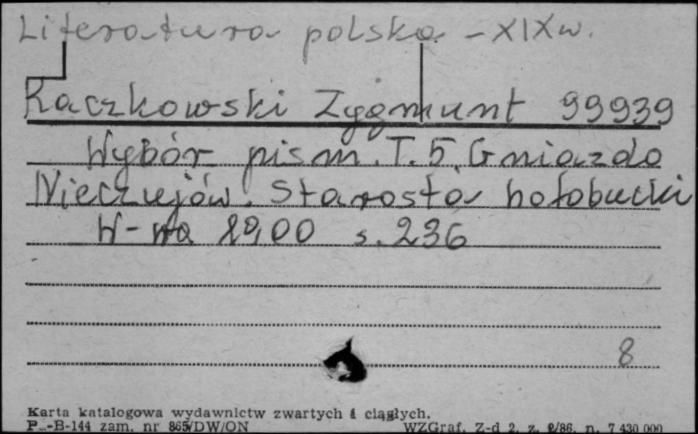 Literatura polska - XIX w.
Kaczkowski Zygmunt 99939
Wybór pism. T. 5. Gniazdo
Nieczujów. Starosta hołobucki
W-wa 1900 s. 236
8
Karta katalogowa wydawnictw zwartych i ciągłych.
P_-B-144 zam. nr 865/DW/ON WZGraf. Z-d 2, z. 2/86. n. 7 430 000